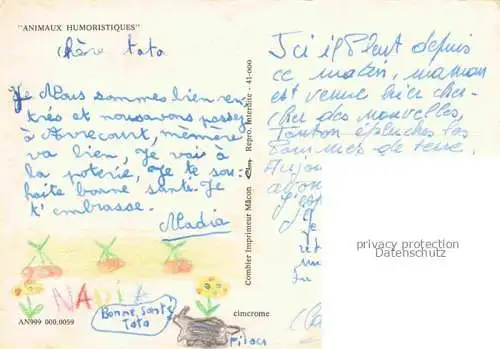 "ANIMAUX HUMORISTIQUES"
chère tata
Je Nous sommes bien ren
trés et nousavons passez
à Avrecourt, mèmère
va bien, Je vais à
la poterie, Je te sou-
haite bonne santé. Je
t'embrasse.
Nadia
NADIA
Bonne, Santé
Tata
AN999 000.0059
cimcrome
Combier Imprimeur Mâcon Repro. Interdite - 41-000
Ici il Pleut depuis
ce matin, maman
est venue hier cher-
cher des nouvelles,
Tonton épluches les
Pommes de terre.
privacy protection
Datenschutz